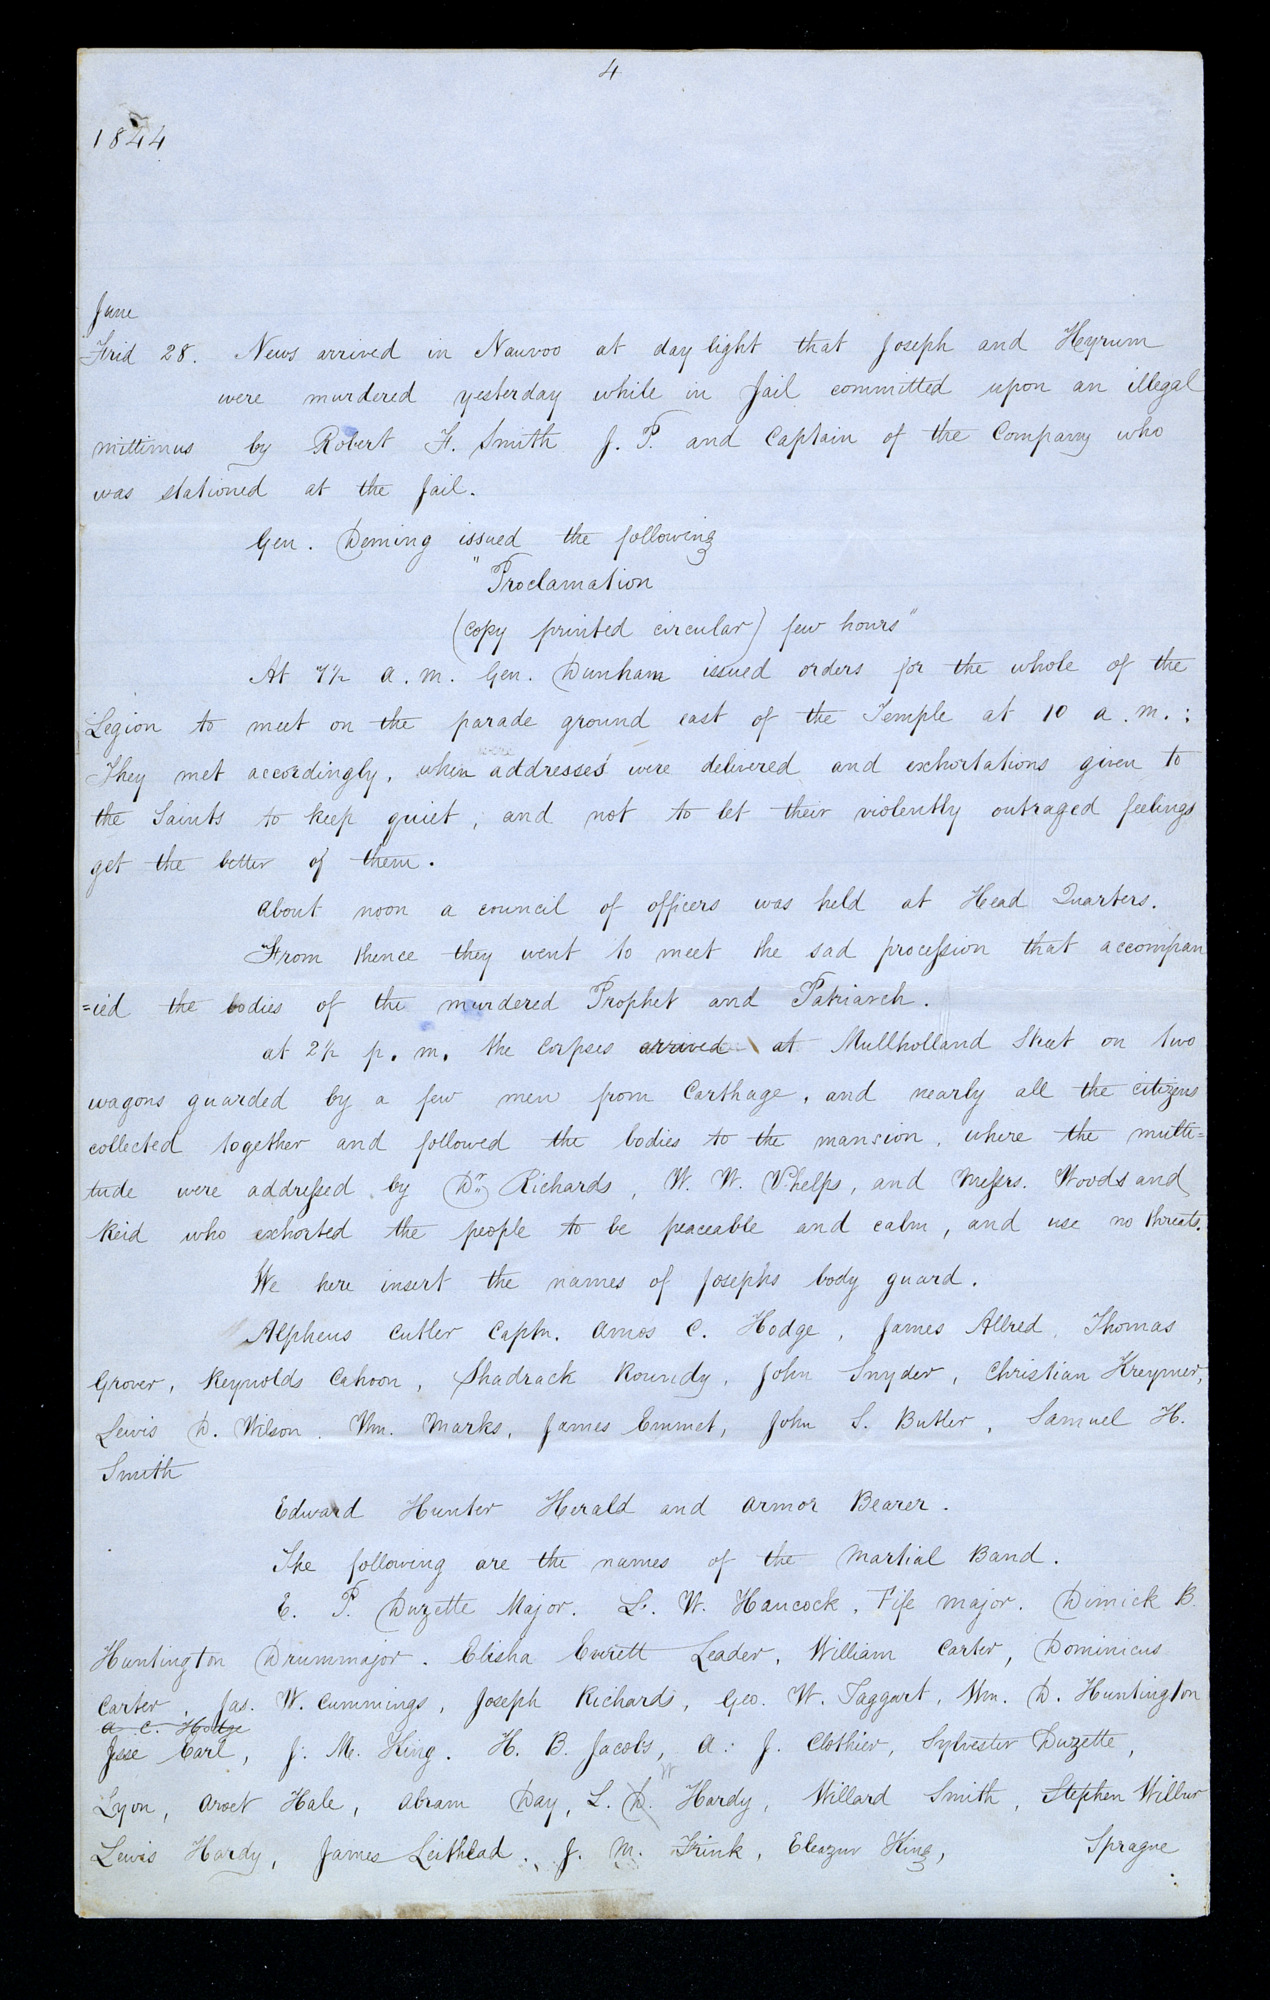 4
1844
June
Frid 28. News arrived in Nauvoo at day light that Joseph and Hyrum
were murdered yesterday while in Jail committed upon an illegal
mittimus by Robert F. Smith J. P. and Captain of the Company who
was stationed at the Jail.
Gen. Deming issued the following
"Proclamation
(copy printed circular) few hours"
At 7½ a.m. Gen. Dunham issued orders for the whole of the
Legion to meet on the parade ground east of the Temple at 10 a.m.;
They met accordingly, when addresses were delivered and exhortations given to
the Saints to keep quiet, and not to let their violently outraged feelings
get the better of them.
About noon a council of officers was held at Head Quarters.
From thence they went to meet the sad procession that accompan
=ied the bodies of the murdered Prophet and Patriarch.
at 2½ p.m. the Corpses arrived at Mullholland Street on two
wagons guarded by a few men from Carthage, and nearly all the citizens
collected together and followed the bodies to the mansion, where the multi=
tude were addressed by Dr. Richards, W. W. Phelps, and Messrs. Woods and
Reid who exhorted the people to be peaceable and calm, and use no threats.
We here insert the names of Josephs body guard.
Alpheus Cutler Captn. Amos C. Hodge, James Allred, Thomas
Grover, Reynolds Cahoon, Shadrack Roundy, John Snyder, Christian Kreymer,
Lewis D. Wilson. Wm. Marks, James Emmet, John S. Butler, Samuel H.
Smith
Edward Hunter Herald and Armor Bearer.
The following are the names of the Martial Band.
E. P. Duzette Major. L. W. Hancock, Fife major. Dimick B.
Huntington Drummajor. Elisha Everett Leader, William Carter, Dominicus
Carter, Jas. W. Cummings, Joseph Richards, Geo. W. Taggart, Wm. D. Huntington
A. C. Hodge
Jesse Earl, J. M. King. H. B. Jacobs, A. J. Clothier, Sylvester Duzette,
W
Lyon, Aroet Hale, Abram Day, L. D. Hardy, Willard Smith, Stephen Wilbur
Lewis Hardy, James Leithead. J. M. Frink, Eleazur King, Sprague